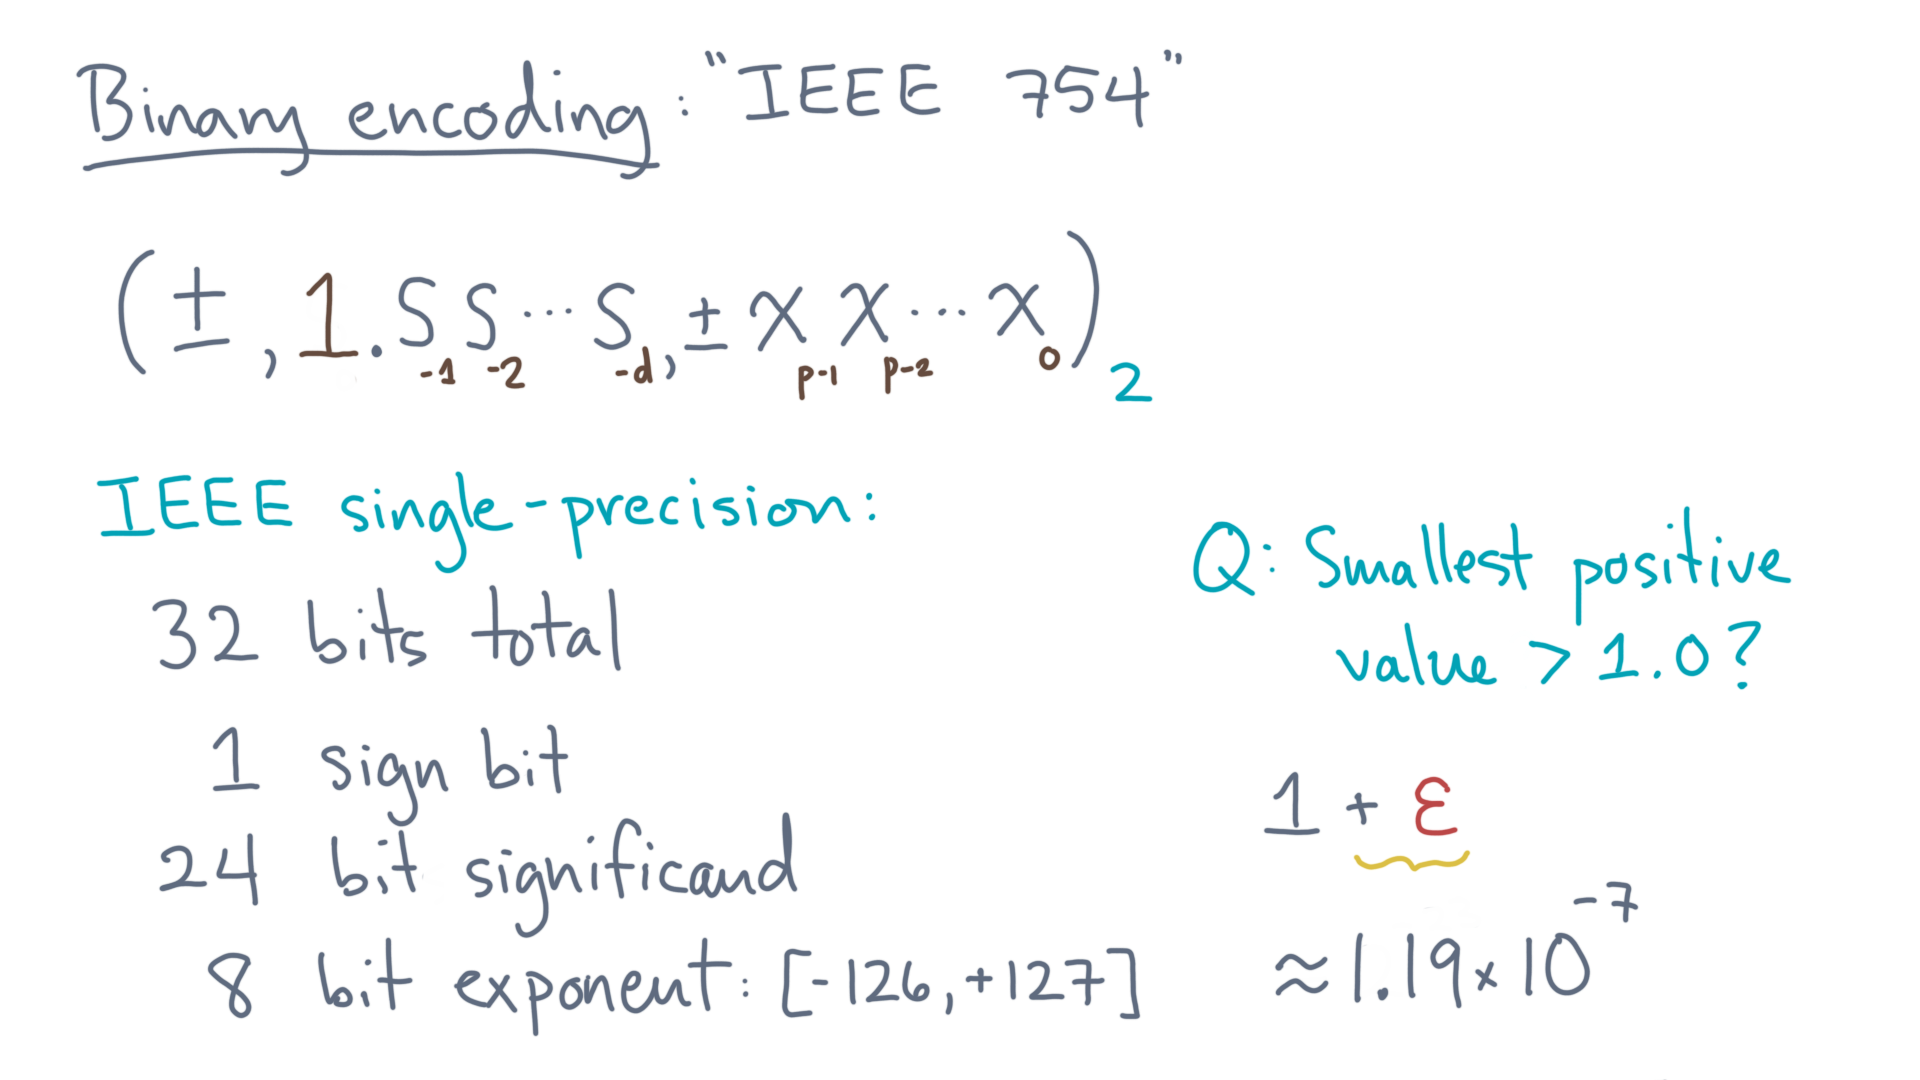 Binary encoding: "IEEE 754"
(±, 1.SS...S, ± x x ... x)
-1 -2 -d p-1 p-2 0 2
IEEE single-precision:
32 bits total
1 sign bit
24 bit significand
8 bit exponent: [-126, +127]
Q: Smallest positive
value > 1.0?
1 + ε
≈ 1.19 x 10^-7